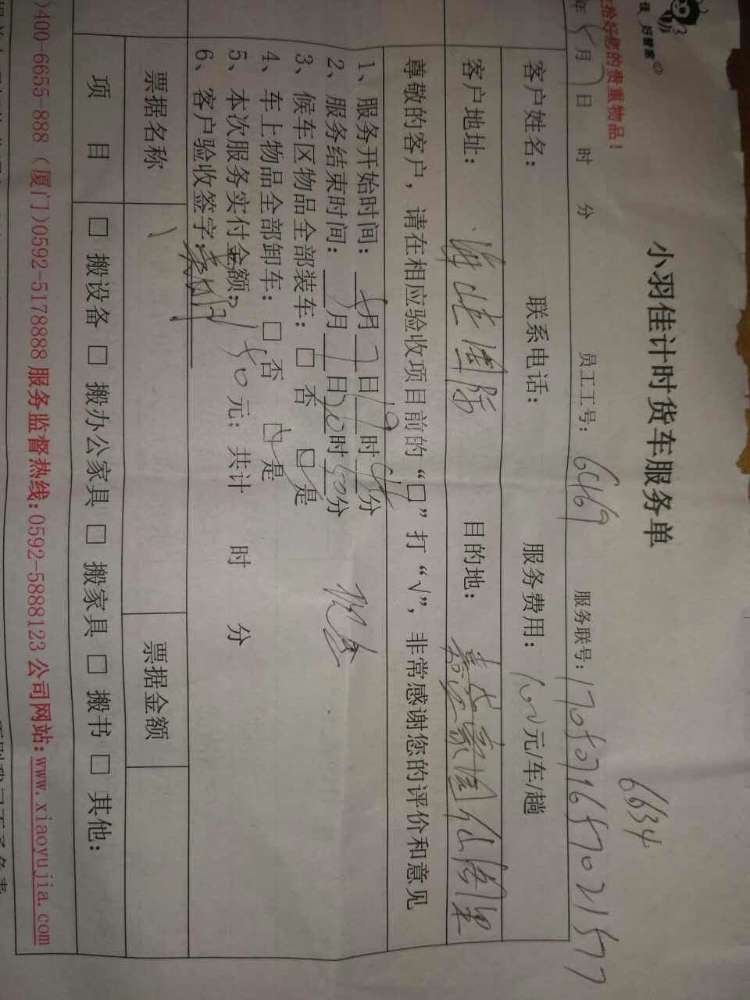 小羽佳计时货车服务单
6634
员工工号: 6469 服务联号: 1705071657021577
年 5 月 7 日 时 分
拾好您的贵重物品!
客户姓名: 联系电话: 服务费用: 100元/车/趟
客户地址: 目的地:
尊敬的客户, 请在相应验收项目前的“口”打“√”, 非常感谢您的评价和意见
1、服务开始时间: 5月7日19时 分
2、服务结束时间: 月7日20时50分
3、候车区物品全部装车: □ 否 □ 是
4、车上物品全部卸车: □ 否 □ 是
5、本次服务实付金额: 150元; 共计 时 分
6、客户验收签字:
现金
票据名称 票据金额
项目 □ 搬设备 □ 搬办公家具 □ 搬家具 □ 搬书 □ 其他:
)400-6655-888 (厦门)0592-5178888 服务监督热线:0592-5888123 公司网站:www.xiaoyujia.com